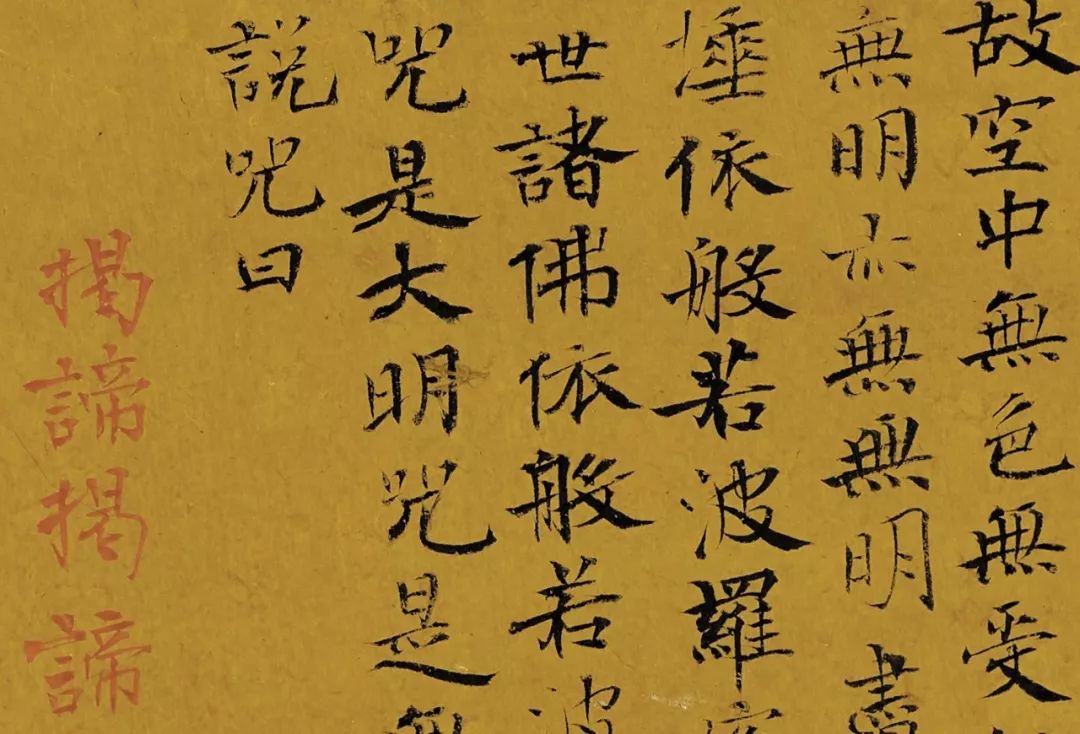 故空中無色無受
無明亦無無明盡
埵依般若波羅
世諸佛依般若波
咒是大明咒是無
說咒曰
揭諦揭諦